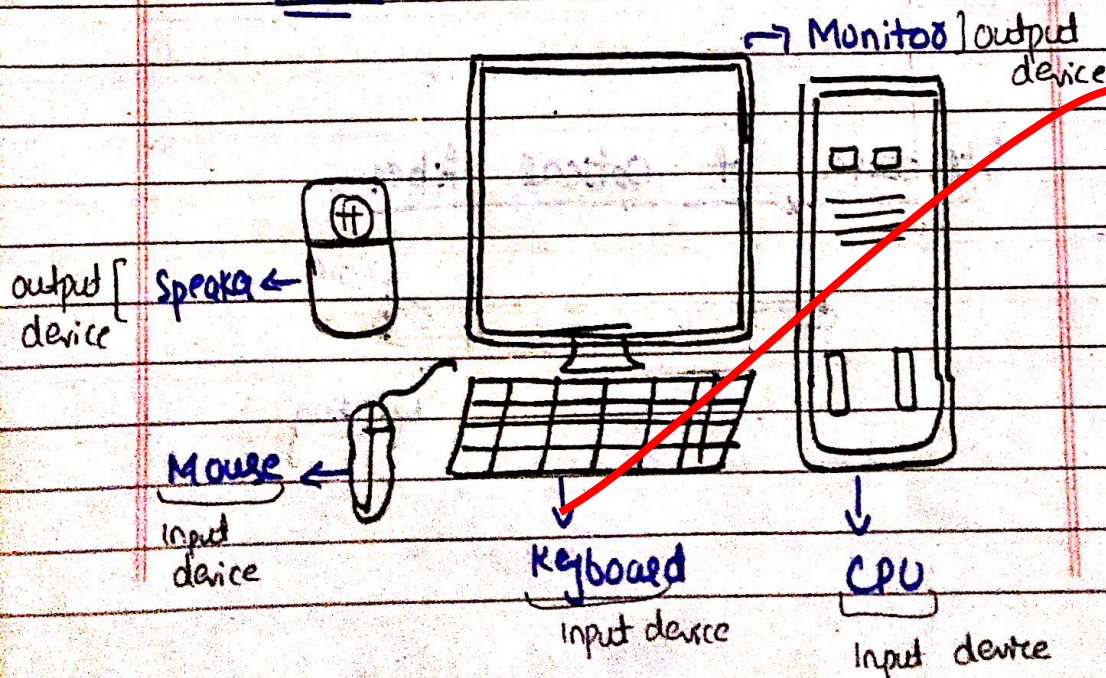 → Monitor ] output
device
output [ Speaker ←
device
Mouse ←
Input
device
Keyboard
Input device
CPU
Input device